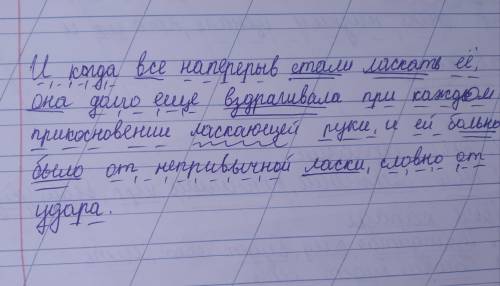 И когда все наперерыв стали ласкать её,
она долго ещё вздрагивала при каждом
прикосновении ласкающей руки, и ей больно
было от непривычной ласки, словно от
удара.